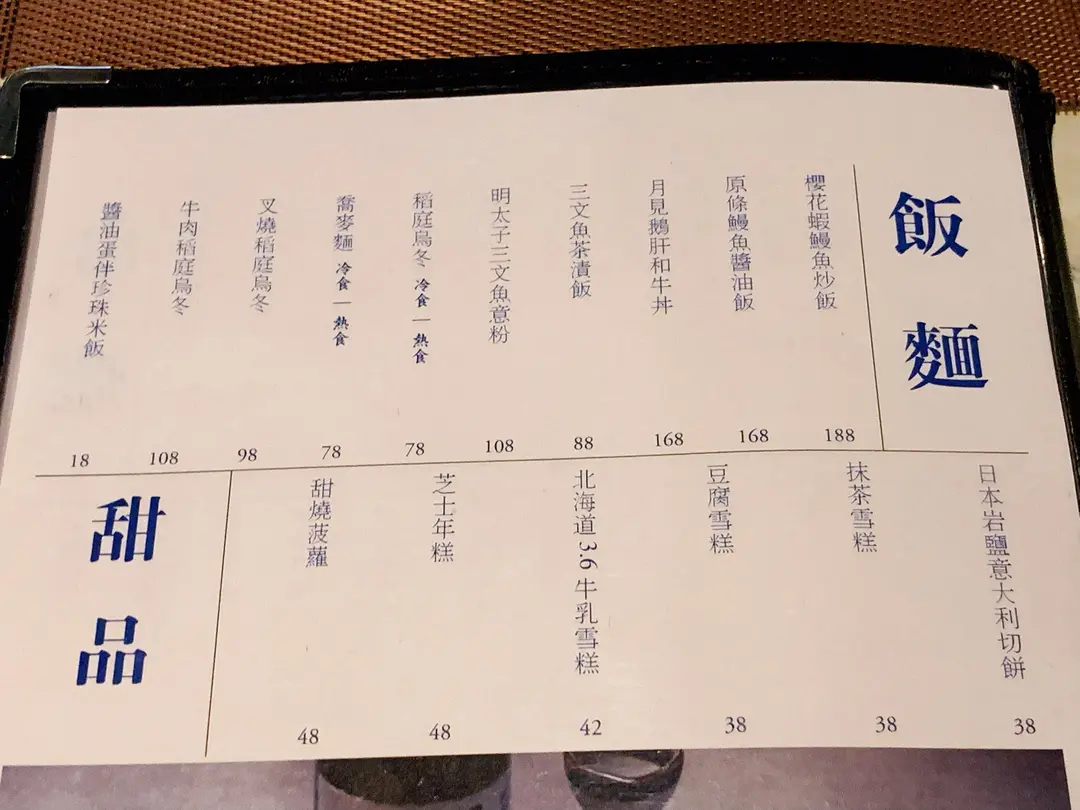 飯麵
櫻花蝦鰻魚炒飯 188
原條鰻魚醬油飯 168
月見鵝肝和牛丼 168
三文魚茶漬飯 88
明太子三文魚意粉 108
稻庭烏冬 冷食 | 熱食 78
蕎麥麵 冷食 | 熱食 78
叉燒稻庭烏冬 98
牛肉稻庭烏冬 108
醬油蛋伴珍珠米飯 18
甜品
日本岩鹽意大利切餅 38
抹茶雪糕 38
豆腐雪糕 38
北海道 3.6 牛乳雪糕 42
芝士年糕 48
甜燒菠蘿 48